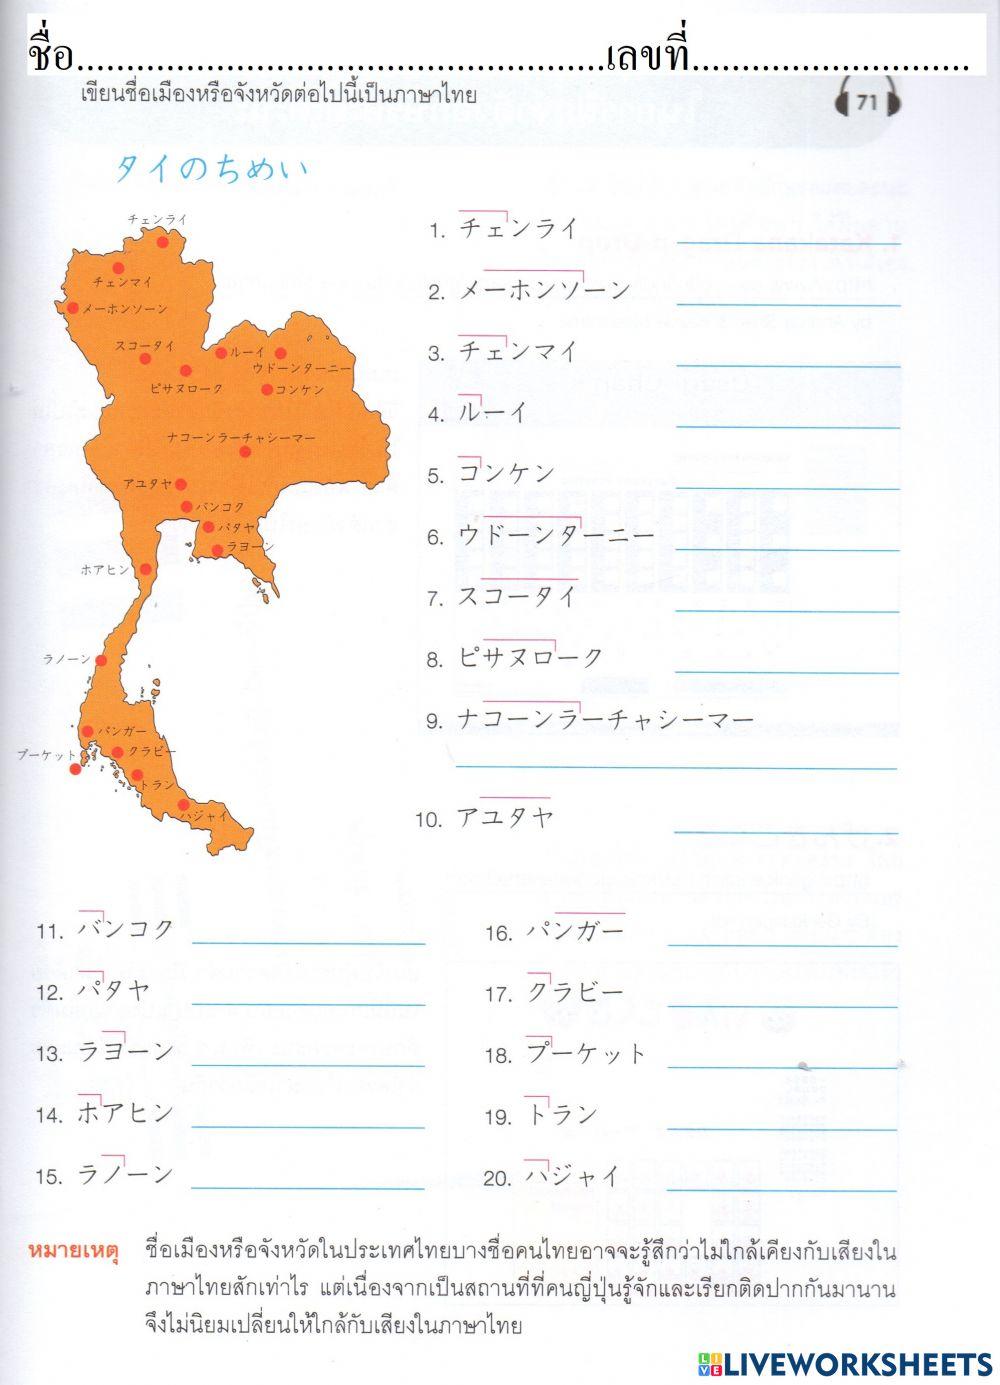 ชื่อ.....................................................เลขที่............................
เขียนชื่อเมืองหรือจังหวัดต่อไปนี้เป็นภาษาไทย
71
タイのちめい
チェンライ
チェンマイ
メーホンソーン
スコータイ
ルーイ
ウドーンターニー
ピサヌローク
コンケン
ナコーンラーチャシーマー
アユタヤ
バンコク
パタヤ
ラヨーン
ホアヒン
ラノーン
パンガー
プーケット
クラビー
トラン
ハジャイ
1. チェンライ
2. メーホンソーン
3. チェンマイ
4. ルーイ
5. コンケン
6. ウドーンターニー
7. スコータイ
8. ピサヌローク
9. ナコーンラーチャシーマー
10. アユタヤ
11. バンコク
12. パタヤ
13. ラヨーン
14. ホアヒン
15. ラノーン
16. パンガー
17. クラビー
18. プーケット
19. トラン
20. ハジャイ
หมายเหตุ ชื่อเมืองหรือจังหวัดในประเทศไทยบางชื่อคนไทยอาจจะรู้สึกว่าไม่ใกล้เคียงกับเสียงใน
ภาษาไทยสักเท่าไร แต่เนื่องจากเป็นสถานที่ที่คนญี่ปุ่นรู้จักและเรียกติดปากกันมานาน
จึงไม่นิยมเปลี่ยนให้ใกล้กับเสียงในภาษาไทย
LIVEWORKSHEETS